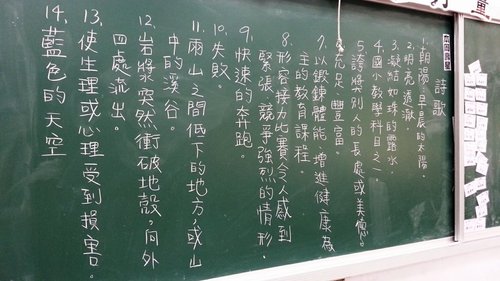 詩歌
1.朝陽:早晨的太陽。
2.明亮透澈。
3.凝結如珠的露水。
4.國小教學科目之一。
5.誇獎別人的長處或美德。
6.充足、豐富。
7.以鍛鍊體能,增進健康為
主的教育課程。
8.形容接力比賽令人感到
緊張,競爭強烈的情形。
9.快速的奔跑。
10.失敗。
11.兩山之間低下的地方,或山
中的溪谷。
12.岩漿突然衝破地殼,向外
四處流出。
13.使生理或心理受到損害。
14.藍色的天空